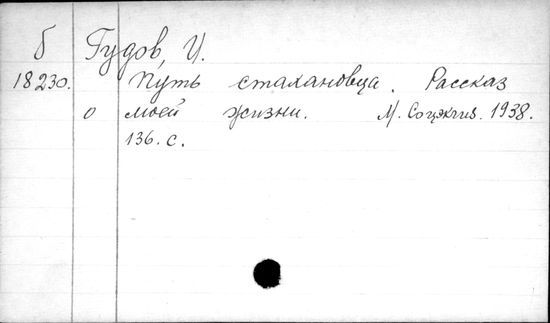 б Гудов, И.
18230. Путь стахановца. Рассказ
о моей жизни. М. Соцэкгиз. 1938.
136. с.